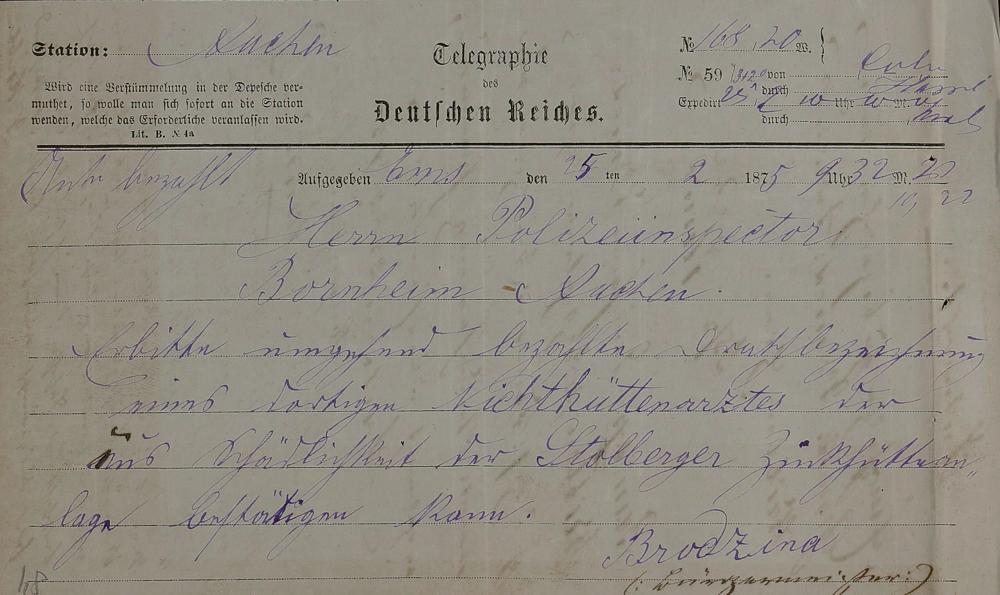 Station: Aachen
Telegraphie
des
Deutschen Reiches.
Wird eine Verstümmelung in der Depesche ver-
muthet, so wolle man sich sofort an die Station
wenden, welche das Erforderliche veranlassen wird.
Lit. B. № 4a
№ 168, 20 W.
№ 59 von Coeln
durch
Expedirt Uhr M.
durch
Antw bezahlt Aufgegeben Ems den 25 ten 2 1875 9 Uhr 32 M.
10, 22
Herrn Polizeiinspector
Bornheim - Aachen.
Erbitte umgehend bezahlte Drathbezeichnung
eines dortigen Nichthüttenarztes der
uns Schädlichkeit der Stolberger Zinkhüttean„
lage bestätigen kann.
Brodzina
(: Bürgermeister :)